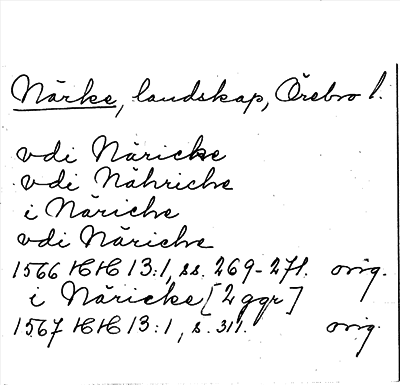 Närke, landskap, Örebro l.
vdi Näricke
vdi Nähriche
i Näriche
vdi Näriche
1566 HH 13:1, ss. 269-271. orig.
i Näricke [2 ggr]
1567 HH 13:1, s. 311. orig.